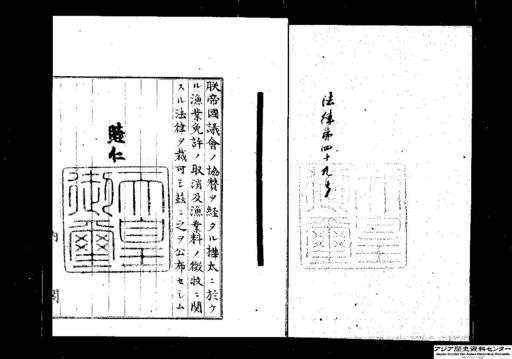 法律第四十九号
朕帝國議會ノ協賛ヲ経タル樺太ニ於ケ
ル漁業免許ノ取消及漁業料ノ徴收ニ関
スル法律ヲ裁可シ玆ニ之ヲ公布セシム
睦仁
天皇
御璽
内閣
アジア歴史資料センター
Japan Center for Asian Historical Records